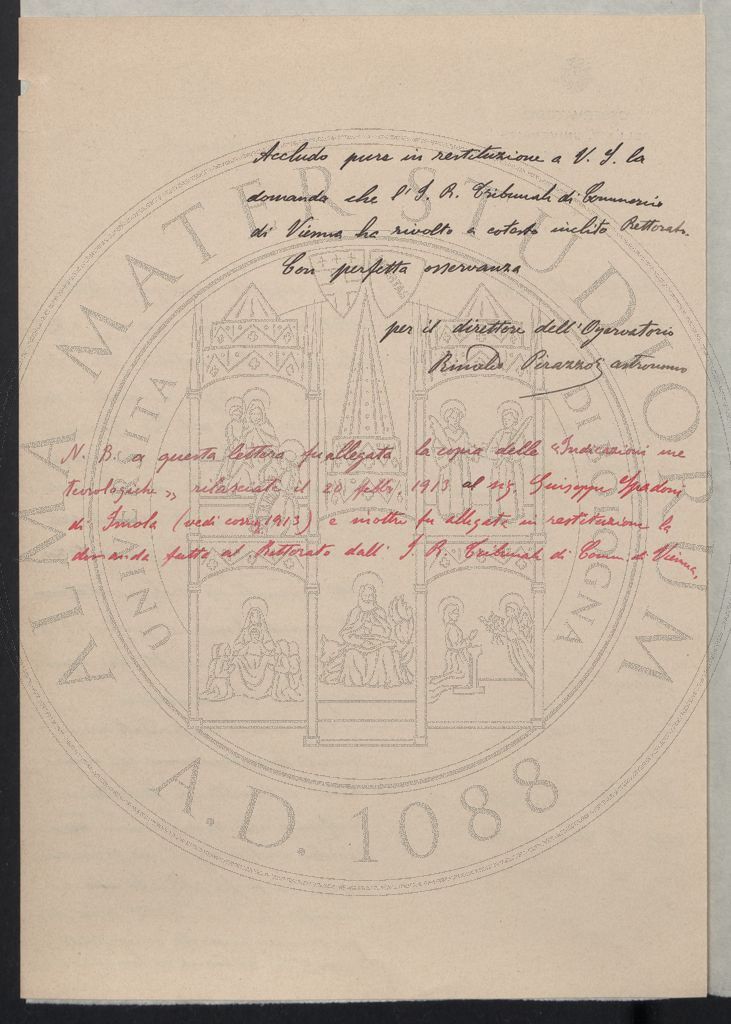 Accludo pure in restituzione a V. S. la
domanda che l'I. R. Tribunale di Commercio
di Vienna ha rivolto a cotesto inclito Rettorato.
Con perfetta osservanza
per il direttore dell'Osservatorio
Rinaldo Pirazzoli astronomo
N. B. a questa lettera fu allegata la copia delle «Indicazioni me
teorologiche» rilasciate il 20 febbr. 1913 al sig. Giuseppe Spadoni
di Imola (vedi corr. 1913) e inoltre fu allegata in restituzione la
domanda fatta al Rettorato dall' I. R. Tribunale di Comm. di Vienna.
ALMA MATER STUDIORUM
UNIVERSITÀ DI BOLOGNA
A.D. 1088